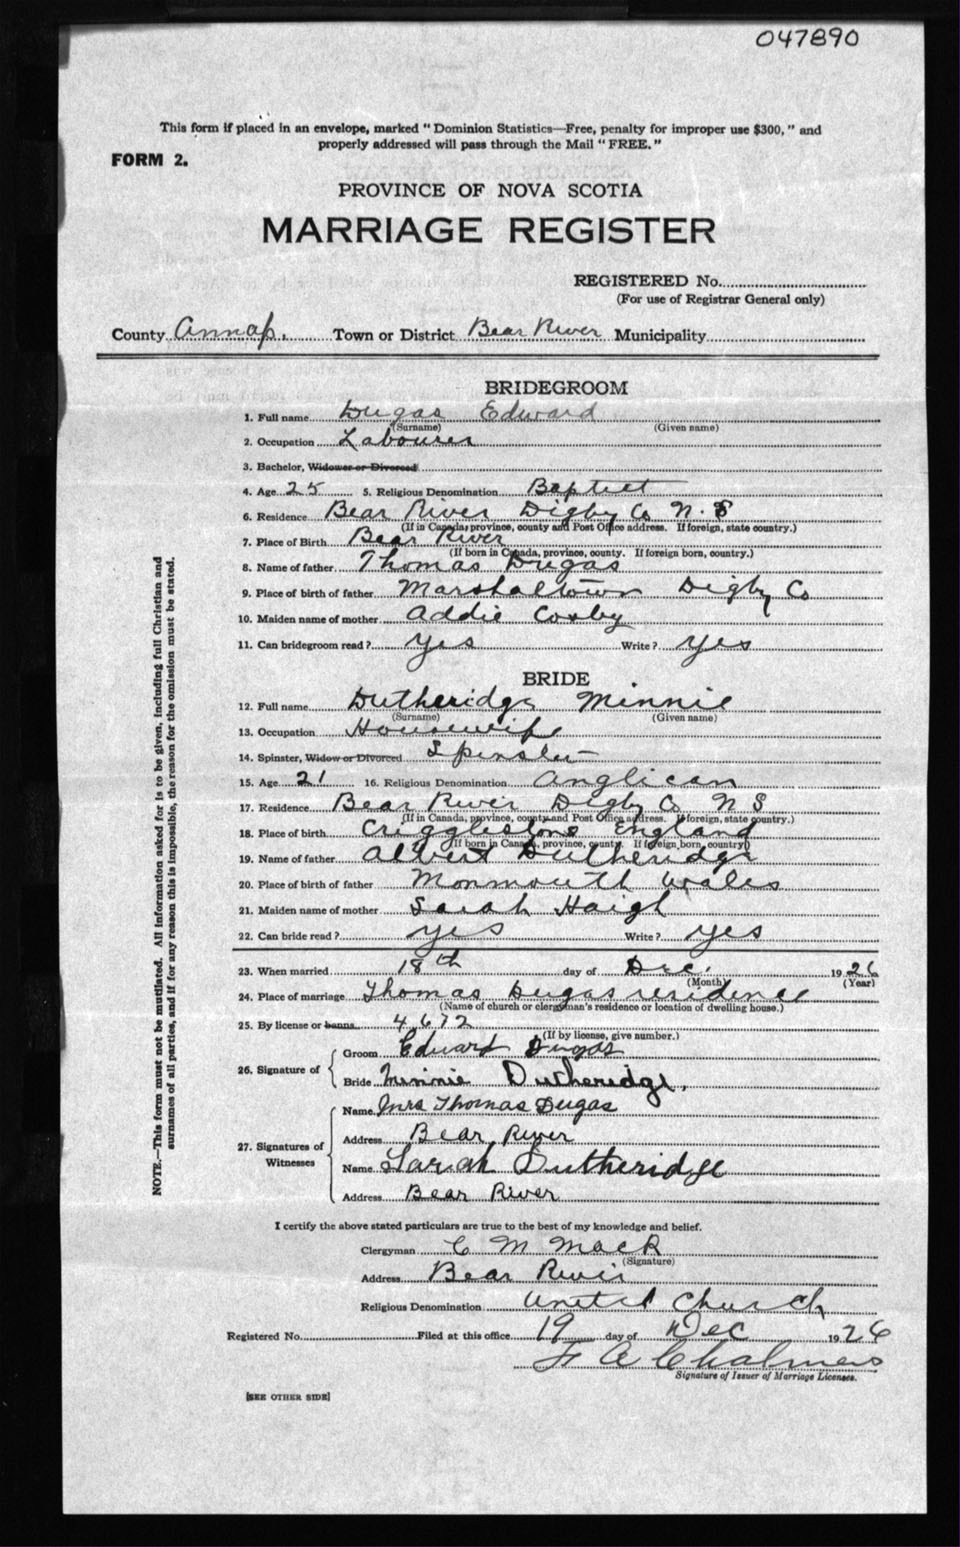 047890
This form if placed in an envelope, marked "Dominion Statistics—Free, penalty for improper use $300," and
properly addressed will pass through the Mail "FREE."
FORM 2.
PROVINCE OF NOVA SCOTIA
MARRIAGE REGISTER
REGISTERED No.
(For use of Registrar General only)
County Annap. Town or District Bear River Municipality
BRIDEGROOM
1. Full name Dugas Edward
(Surname) (Given name)
2. Occupation Labourer
3. Bachelor, Widower or Divorced
4. Age 25 5. Religious Denomination Baptist
6. Residence Bear River Digby Co N.S
(If in Canada, province, county and Post Office address. If foreign, state country.)
7. Place of Birth Bear River
(If born in Canada, province, county. If foreign born, country.)
8. Name of father Thomas Dugas
9. Place of birth of father Marshaltown Digby Co
10. Maiden name of mother Addie Cosby
11. Can bridegroom read? Yes Write? Yes
BRIDE
12. Full name Dutheridge Minnie
(Surname) (Given name)
13. Occupation Housewife
14. Spinster, Widow or Divorced Spinster
15. Age 21 16. Religious Denomination Anglican
17. Residence Bear River Digby Co N S
(If in Canada, province, county and Post Office address. If foreign, state country.)
18. Place of birth Crigglestone England
(If born in Canada, province, county. If foreign born, country)
19. Name of father Albert Dutheridge
20. Place of birth of father Monmouth Wales
21. Maiden name of mother Sarah Haigh
22. Can bride read? Yes Write? Yes
23. When married 18th day of Dec. 1926
(Month) (Year)
24. Place of marriage Thomas Dugas residence
(Name of church or clergyman's residence or location of dwelling house.)
25. By license or banns 4672
(If by license, give number.)
26. Signature of
Groom Edward Dugas
Bride Minnie Dutheridge.
27. Signatures of Witnesses
Name Mrs Thomas Dugas
Address Bear River
Name Sarah Dutheridge
Address Bear River
I certify the above stated particulars are true to the best of my knowledge and belief.
Clergyman C M Mack
(Signature)
Address Bear River
Religious Denomination United Church
Registered No. Filed at this office 19 day of Dec 1926
F A Chalmers
Signature of Issuer of Marriage Licenses.
[SEE OTHER SIDE]
NOTE.—This form must not be mutilated. All information asked for is to be given, including full Christian and
surnames of all parties, and if for any reason this is impossible, the reason for the omission must be stated.